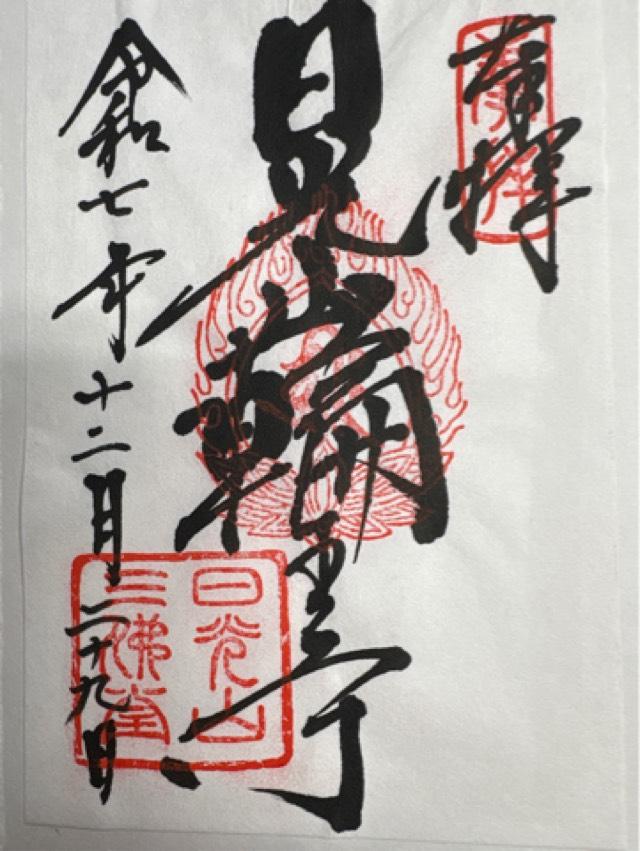 奉拝
日光山
輪王寺
令和七年十二月二十九日
日光山
三佛堂